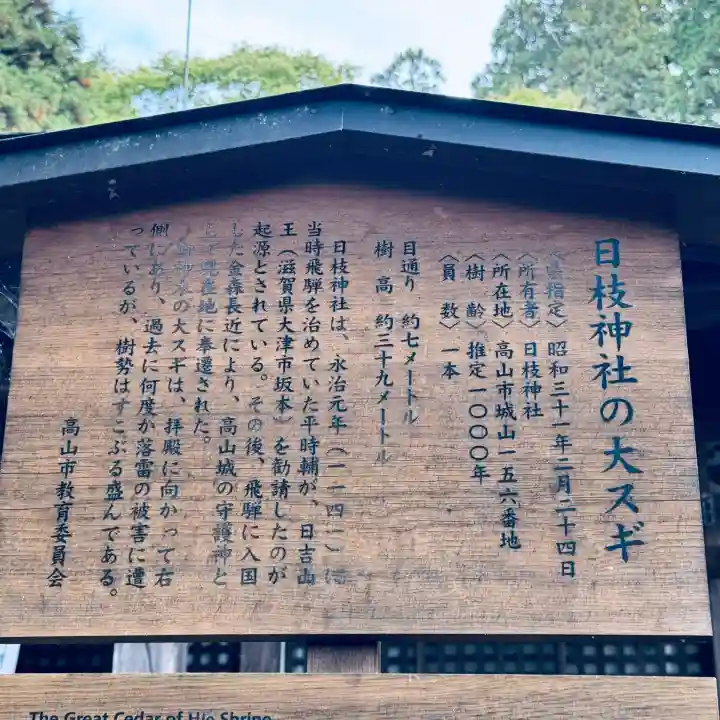 日枝神社の大スギ
〈県指定〉 昭和三十一年二月二十四日
〈所有者〉 日枝神社
〈所在地〉 高山市城山一五六番地
〈樹 齢〉 推定一〇〇〇年
〈員 数〉 一本
目通り 約七メートル
樹 高 約三十九メートル
日枝神社は、永治元年(一一四一)に
当時飛騨を治めていた平時輔が、日吉山
王(滋賀県大津市坂本)を勧請したのが
起源とされている。その後、飛騨に入国
した金森長近により、高山城の守護神と
して現在地に奉遷された。
御神木の大スギは、拝殿に向かって右
側にあり、過去に何度か落雷の被害に遭
っているが、樹勢はすこぶる盛んである。
高山市教育委員会
The Great Cedar of Hie Shrine